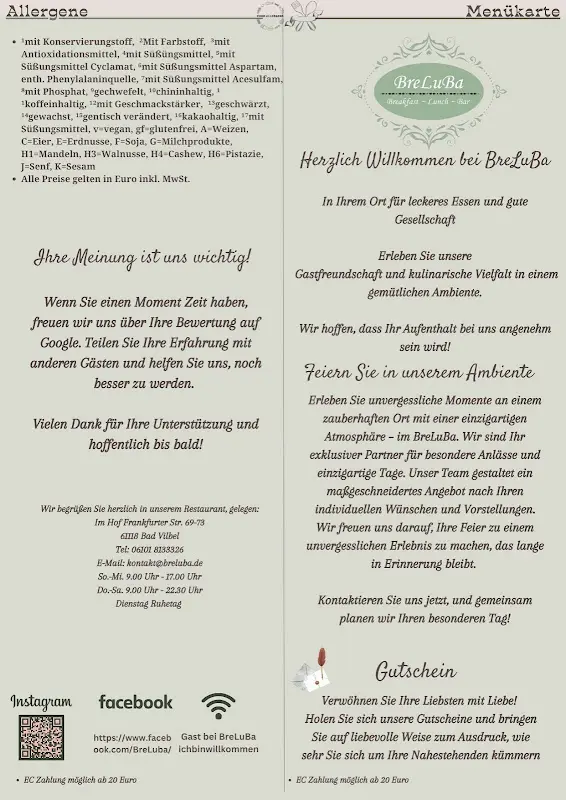 Allergene
• ¹mit Konservierungstoff, ²Mit Farbstoff, ³mit
Antioxidationsmittel, ⁴mit Süßüngsmittel, ⁵mit
Süßungsmittel Cyclamat, ⁶mit Süßungsmittel Aspartam,
enth. Phenylalaninquelle, ⁷mit Süßungsmittel Acesulfam,
⁸mit Phosphat, ⁹gechwefelt, ¹⁰chininhaltig, ¹
¹koffeinhaltig, ¹²mit Geschmackstärker, ¹³geschwärzt,
¹⁴gewachst, ¹⁵gentisch verändert, ¹⁶kakaohaltig, ¹⁷mit
Süßungsmittel, v=vegan, gf=glutenfrei, A=Weizen,
C=Eier, E=Erdnusse, F=Soja, G=Milchprodukte,
H1=Mandeln, H3=Walnusse, H4=Cashew, H6=Pistazie,
J=Senf, K=Sesam
• Alle Preise gelten in Euro inkl. MwSt.
Ihre Meinung ist uns wichtig!
Wenn Sie einen Moment Zeit haben,
freuen wir uns über Ihre Bewertung auf
Google. Teilen Sie Ihre Erfahrung mit
anderen Gästen und helfen Sie uns, noch
besser zu werden.
Vielen Dank für Ihre Unterstützung und
hoffentlich bis bald!
Wir begrüßen Sie herzlich in unserem Restaurant, gelegen:
Im Hof Frankfurter Str. 69-73
61118 Bad Vilbel
Tel: 06101 8133326
E-Mail: kontakt@breluba.de
So.-Mi. 9.00 Uhr - 17.00 Uhr
Do.-Sa. 9.00 Uhr - 22.30 Uhr
Dienstag Ruhetag
Instagram
facebook
https://www.faceb
ook.com/BreLuba/
Gast bei BreLuBa
ichbinwillkommen
• EC Zahlung möglich ab 20 Euro
Menükarte
BreLuBa
Breakfast ~ Lunch ~ Bar
Herzlich Willkommen bei BreLuBa
In Ihrem Ort für leckeres Essen und gute
Gesellschaft
Erleben Sie unsere
Gastfreundschaft und kulinarische Vielfalt in einem
gemütlichen Ambiente.
Wir hoffen, dass Ihr Aufenthalt bei uns angenehm
sein wird!
Feiern Sie in unserem Ambiente
Erleben Sie unvergessliche Momente an einem
zauberhaften Ort mit einer einzigartigen
Atmosphäre – im BreLuBa. Wir sind Ihr
exklusiver Partner für besondere Anlässe und
einzigartige Tage. Unser Team gestaltet ein
maßgeschneidertes Angebot nach Ihren
individuellen Wünschen und Vorstellungen.
Wir freuen uns darauf, Ihre Feier zu einem
unvergesslichen Erlebnis zu machen, das lange
in Erinnerung bleibt.
Kontaktieren Sie uns jetzt, und gemeinsam
planen wir Ihren besonderen Tag!
Gutschein
Verwöhnen Sie Ihre Liebsten mit Liebe!
Holen Sie sich unsere Gutscheine und bringen
Sie auf liebevolle Weise zum Ausdruck, wie
sehr Sie sich um Ihre Nahestehenden kümmern
• EC Zahlung möglich ab 20 Euro